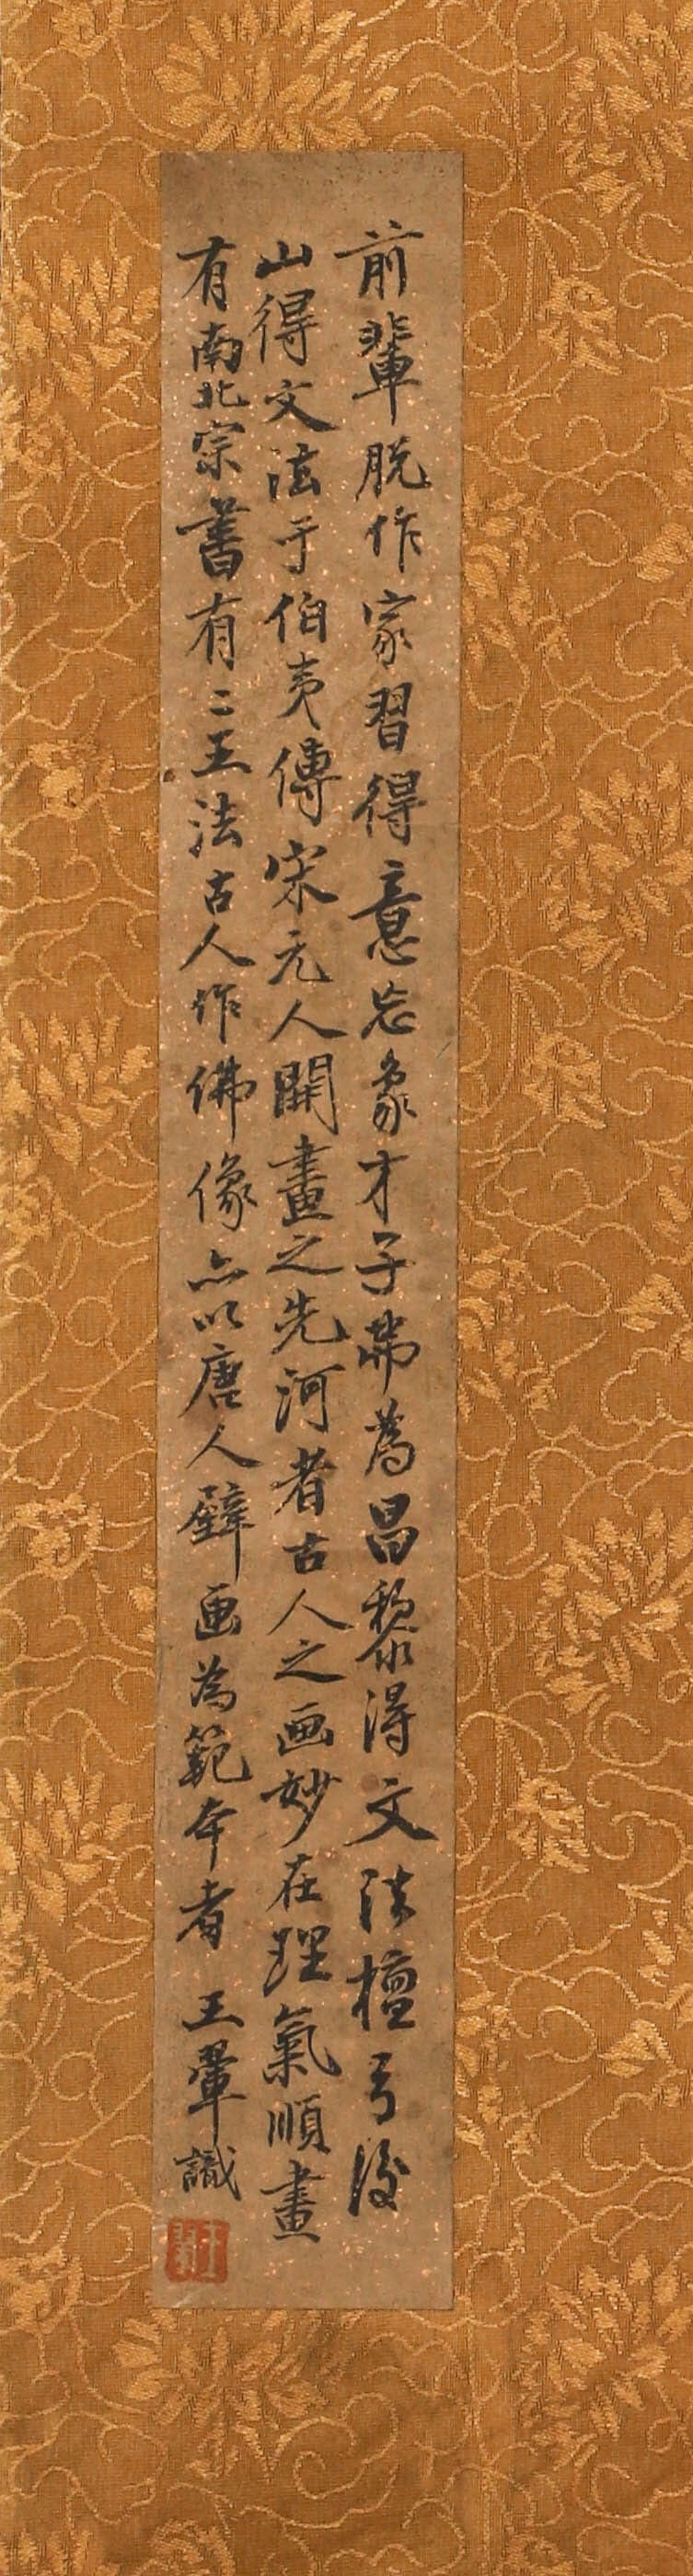 前輩脱作家習得意忘象才子弗為昌黎得文法檀弓後
山得文法于伯夷傳宋元人開畫之先河者古人之画妙在理氣順畫
有南北宗書有二王法古人作佛像亦以唐人壁画為範本者 王翬識